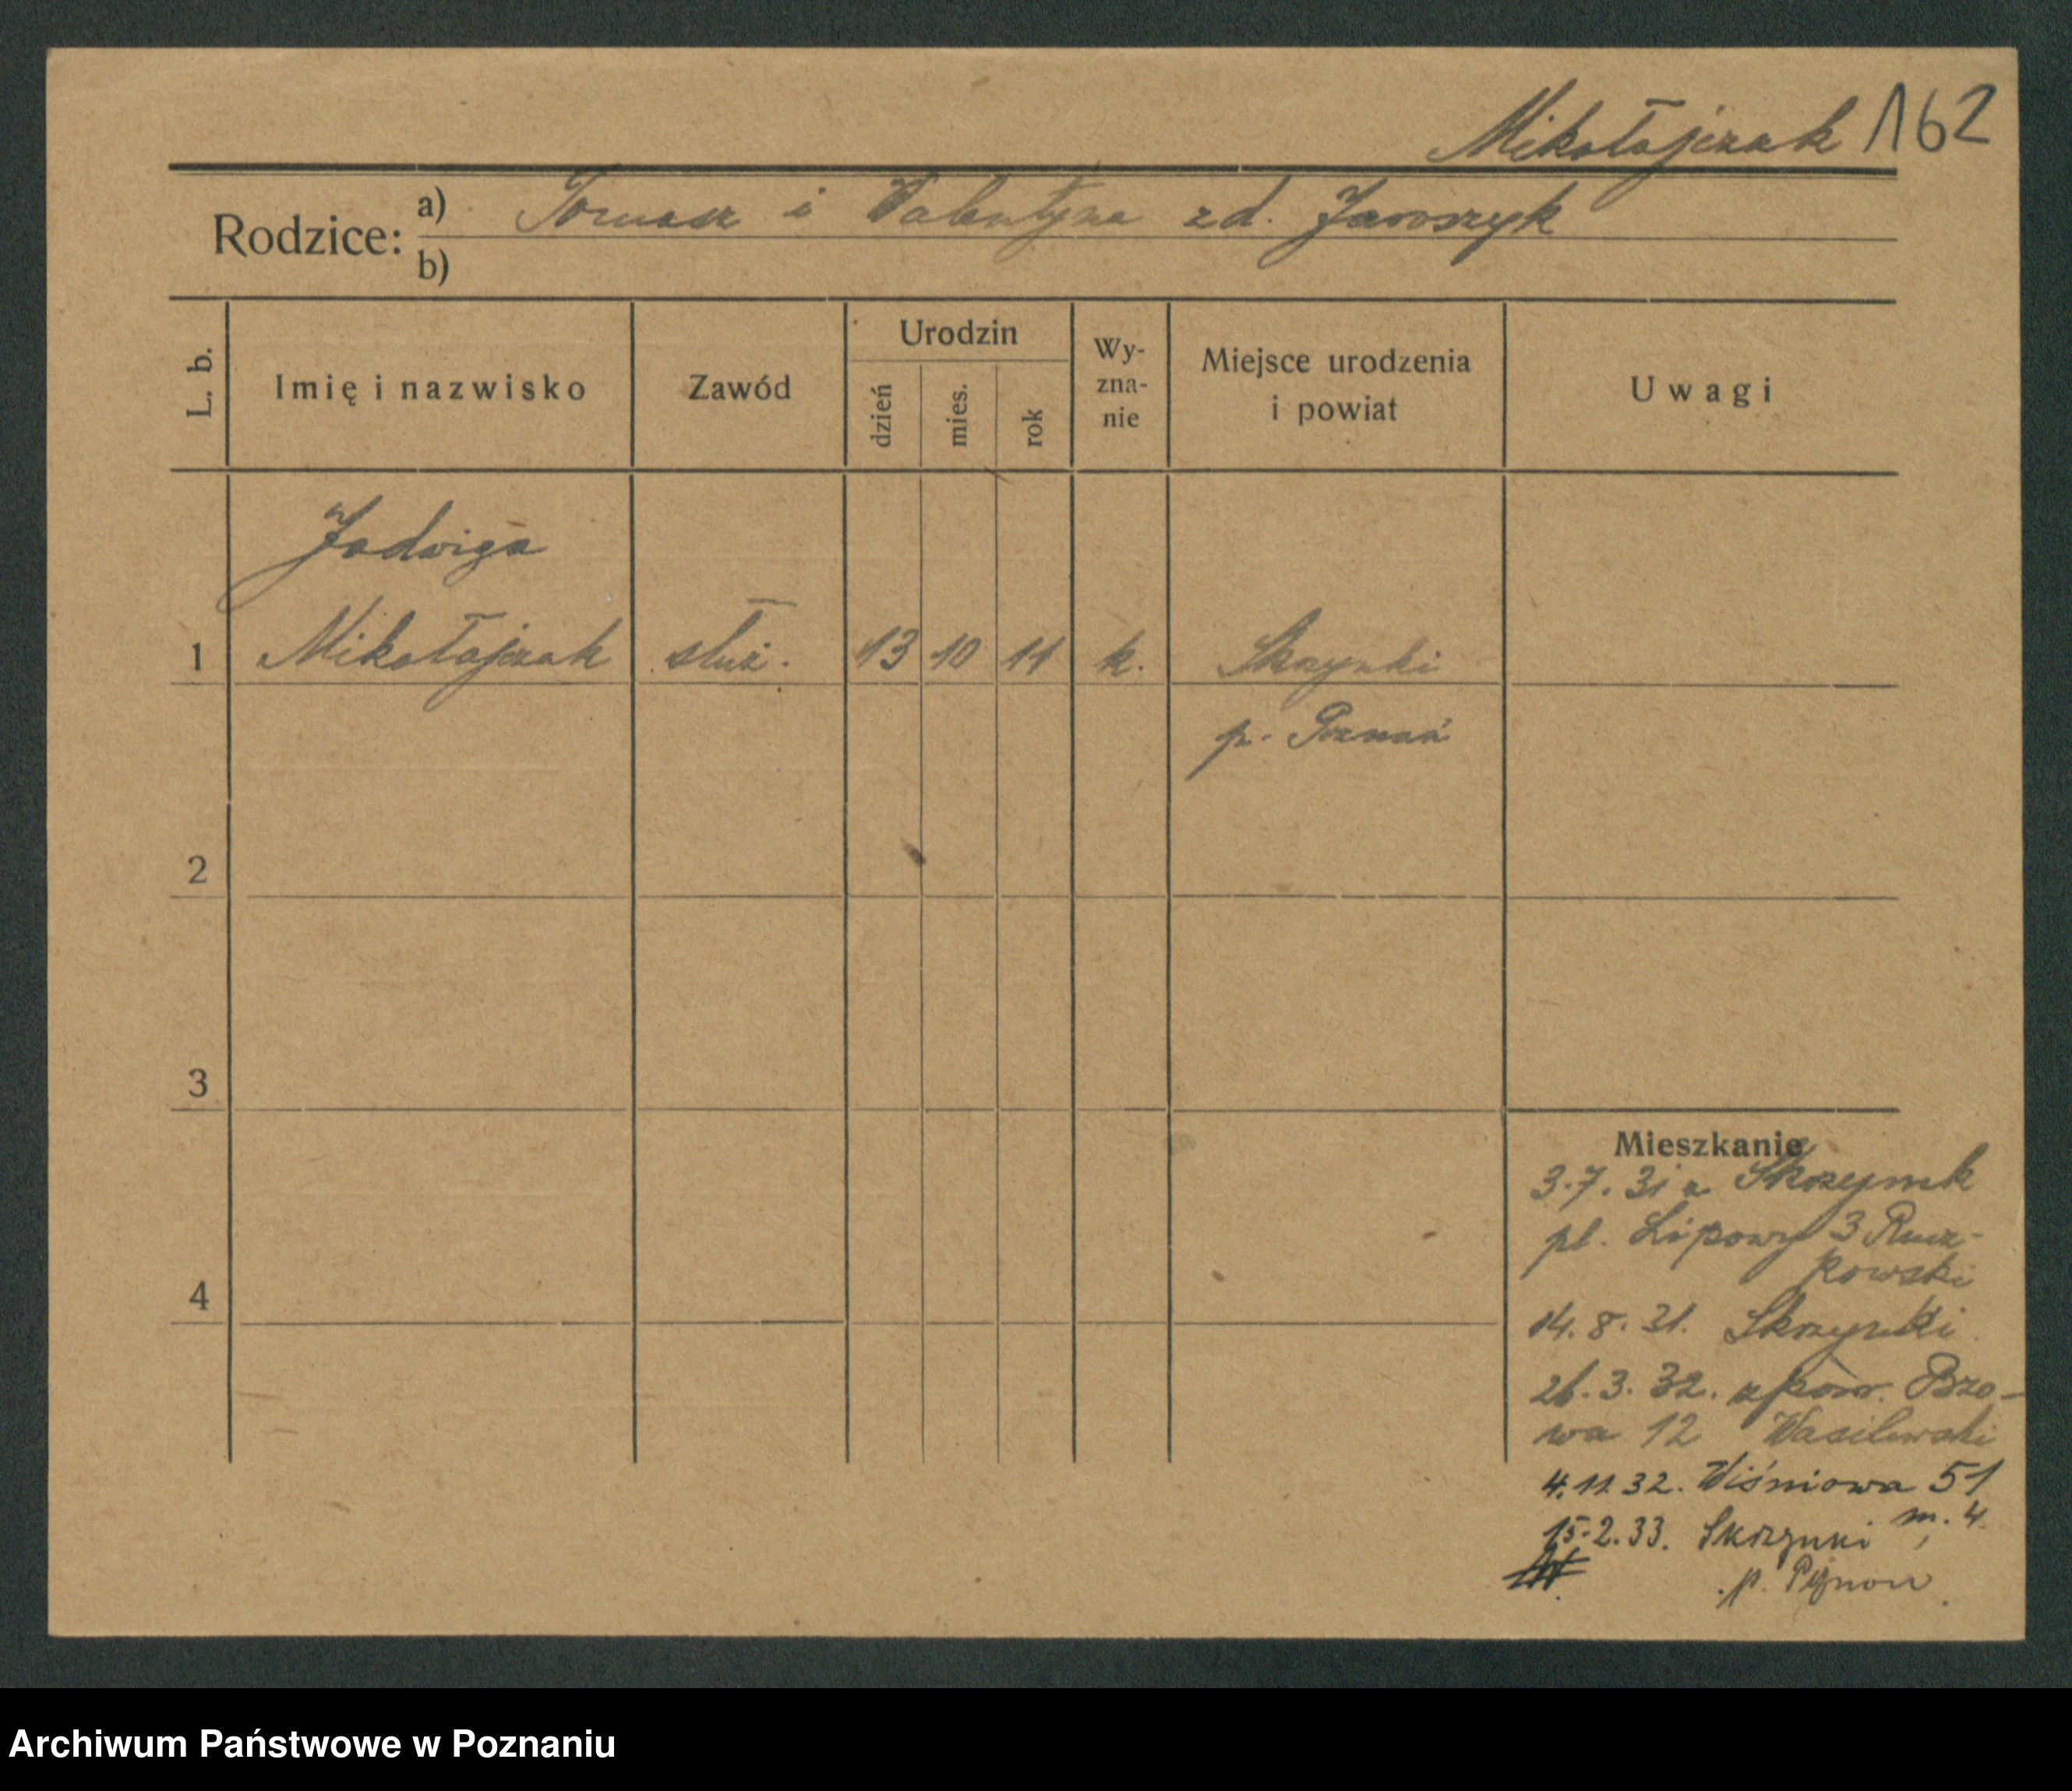 Mikołajczak 162
Rodzice: a) Tomasz i Walentyna zd. Jaroszyk
b)
L. b.
Imię i nazwisko
Zawód
Urodzin
dzień
mies.
rok
Wy-
zna-
nie
Miejsce urodzenia
i powiat
Uwagi
Jadwiga
1 Mikołajczak służ. 13 10 11 k. Skrzynki
p. Poznań
2
3
4
Mieszkanie
3.7.31 z Skrzynek
pl. Lipowy 3
kowski
14.8.31. Skrzynki
26.3.32. z pow. Brzo-
wa 12 Wasilewski
4.11.32. Wiśniowa 51
m. 4
15.2.33. Skrzynki,
p.
Archiwum Państwowe w Poznaniu